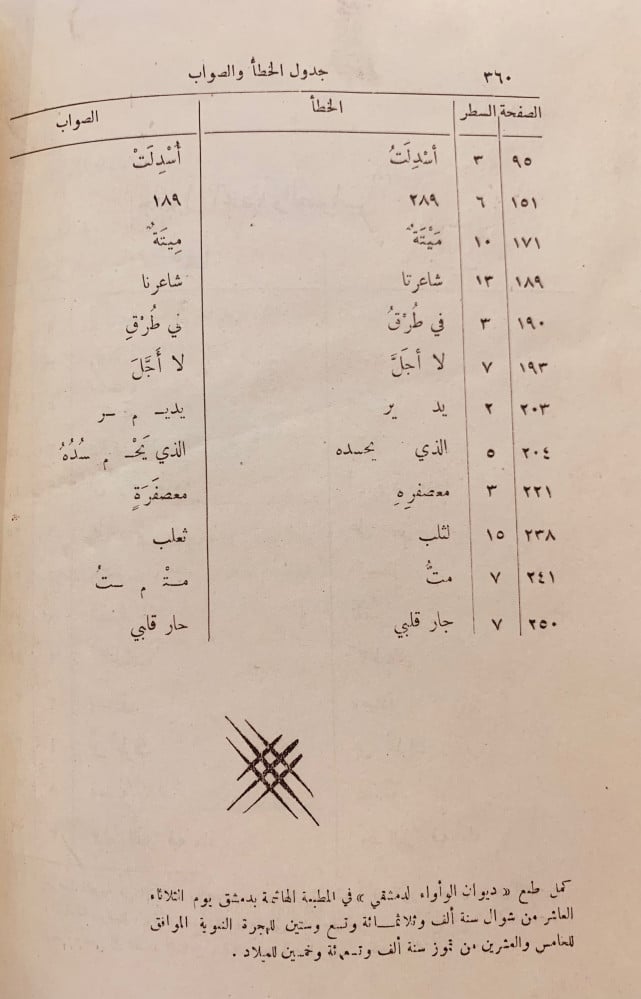 ٣٦٠ جدول الخطأ والصواب
الصفحة السطر الخطأ الصواب
٩٥ ٣ أسْدِلَتُ أُسْدِلَتْ
١٥١ ٦ ٢٨٩ ١٨٩
١٧١ ١٠ مَيْتَةٌ مِيتَةٌ
١٨٩ ١٣ شاعرتا شاعرنا
١٩٠ ٣ في طُرْقُ في طُرْقِ
١٩٣ ٧ لا أجَلَّ لا أَجَّلَ
٢٠٣ ٢ يد ير يديـ م ـر
٢٠٤ ٥ الذي يحسده الذي يَحْـ م ـسُدُهُ
٢٢١ ٣ معصفرِهِ معصفَرَةٍ
٢٣٨ ١٥ لثلب ثعلب
٢٤١ ٧ متُّ متْـ م ـتُ
٢٥٠ ٧ جار قلبي حار قلبي
كمل طبع « ديوان الوأواء لدمشقي » في المطبعة الهاشمية بدمشق يوم الثلاثاء
العاشر من شوال سنة ألف وثلاثمـائة وتسع وستين للهجرة النبوية الموافق
للخامس والعشرين من تموز سنة ألف وتسعمئة وخمسين للميلاد .